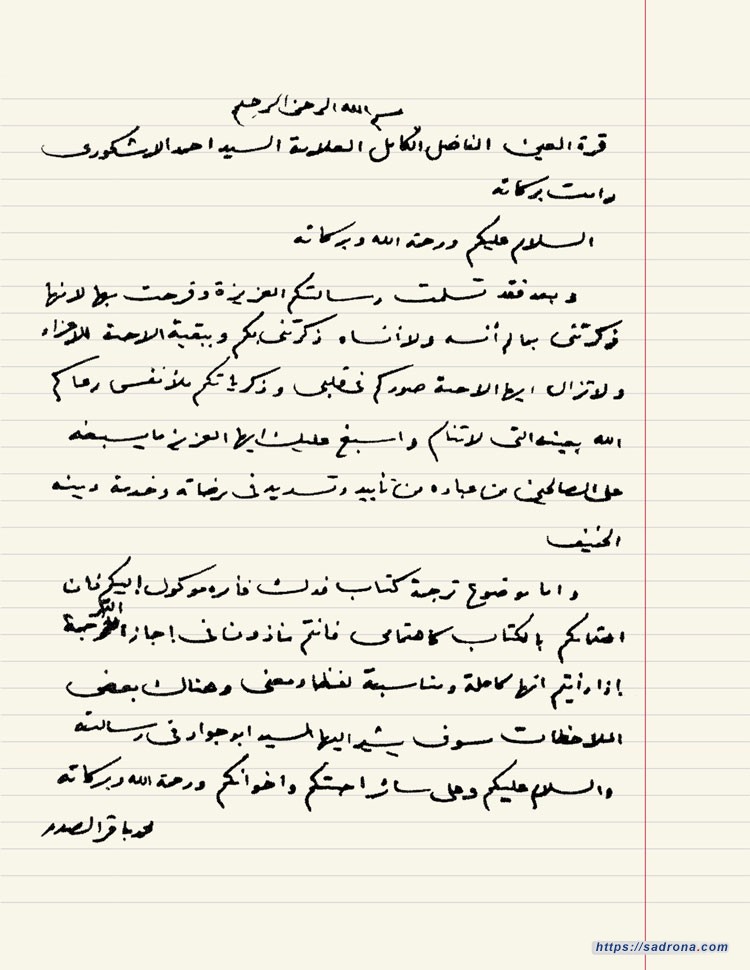 بسم الله الرحمن الرحيم
قرة العين الفاضل الكامل العلامة السيد احمد الاشكورى
دامت بركاته
السلام عليكم ورحمة الله وبركاته
وبعد فقد تسلمت رسالتكم العزيزة وفرحت بها لانها
ذكرتنى بمالم أنسه ولاأنساه ذكرتنى بكم وببقية الاحبة الاعزاء
ولاتزال ايها الاحبة صوركم فى قلبى وذكرياتكم ملأنفسى رعاكم
الله بعينه التى لاتنام واسبغ عليك ايها العزيز مايسبغه
على الصالحين من عباده من تأييد وتسديد فى مرضاته وخدمة دينه
الحنيف
واما موضوع ترجمة كتاب فدك فأمره موكول إليكم فان
اهتمامكم بالكتاب كاهتمامى فانتم مأذونان فى إجازة الترجمة
إذا رأيتم انها كاملة ومناسبة لفظا ومعنى وهناك بعض
الملاحظات سوف يشير اليها السيد ابو جواد فى رسالته
والسلام عليكم وعلى سائر احبتكم واخوانكم ورحمة الله وبركاته
محمد باقر الصدر
https://sadrona.com